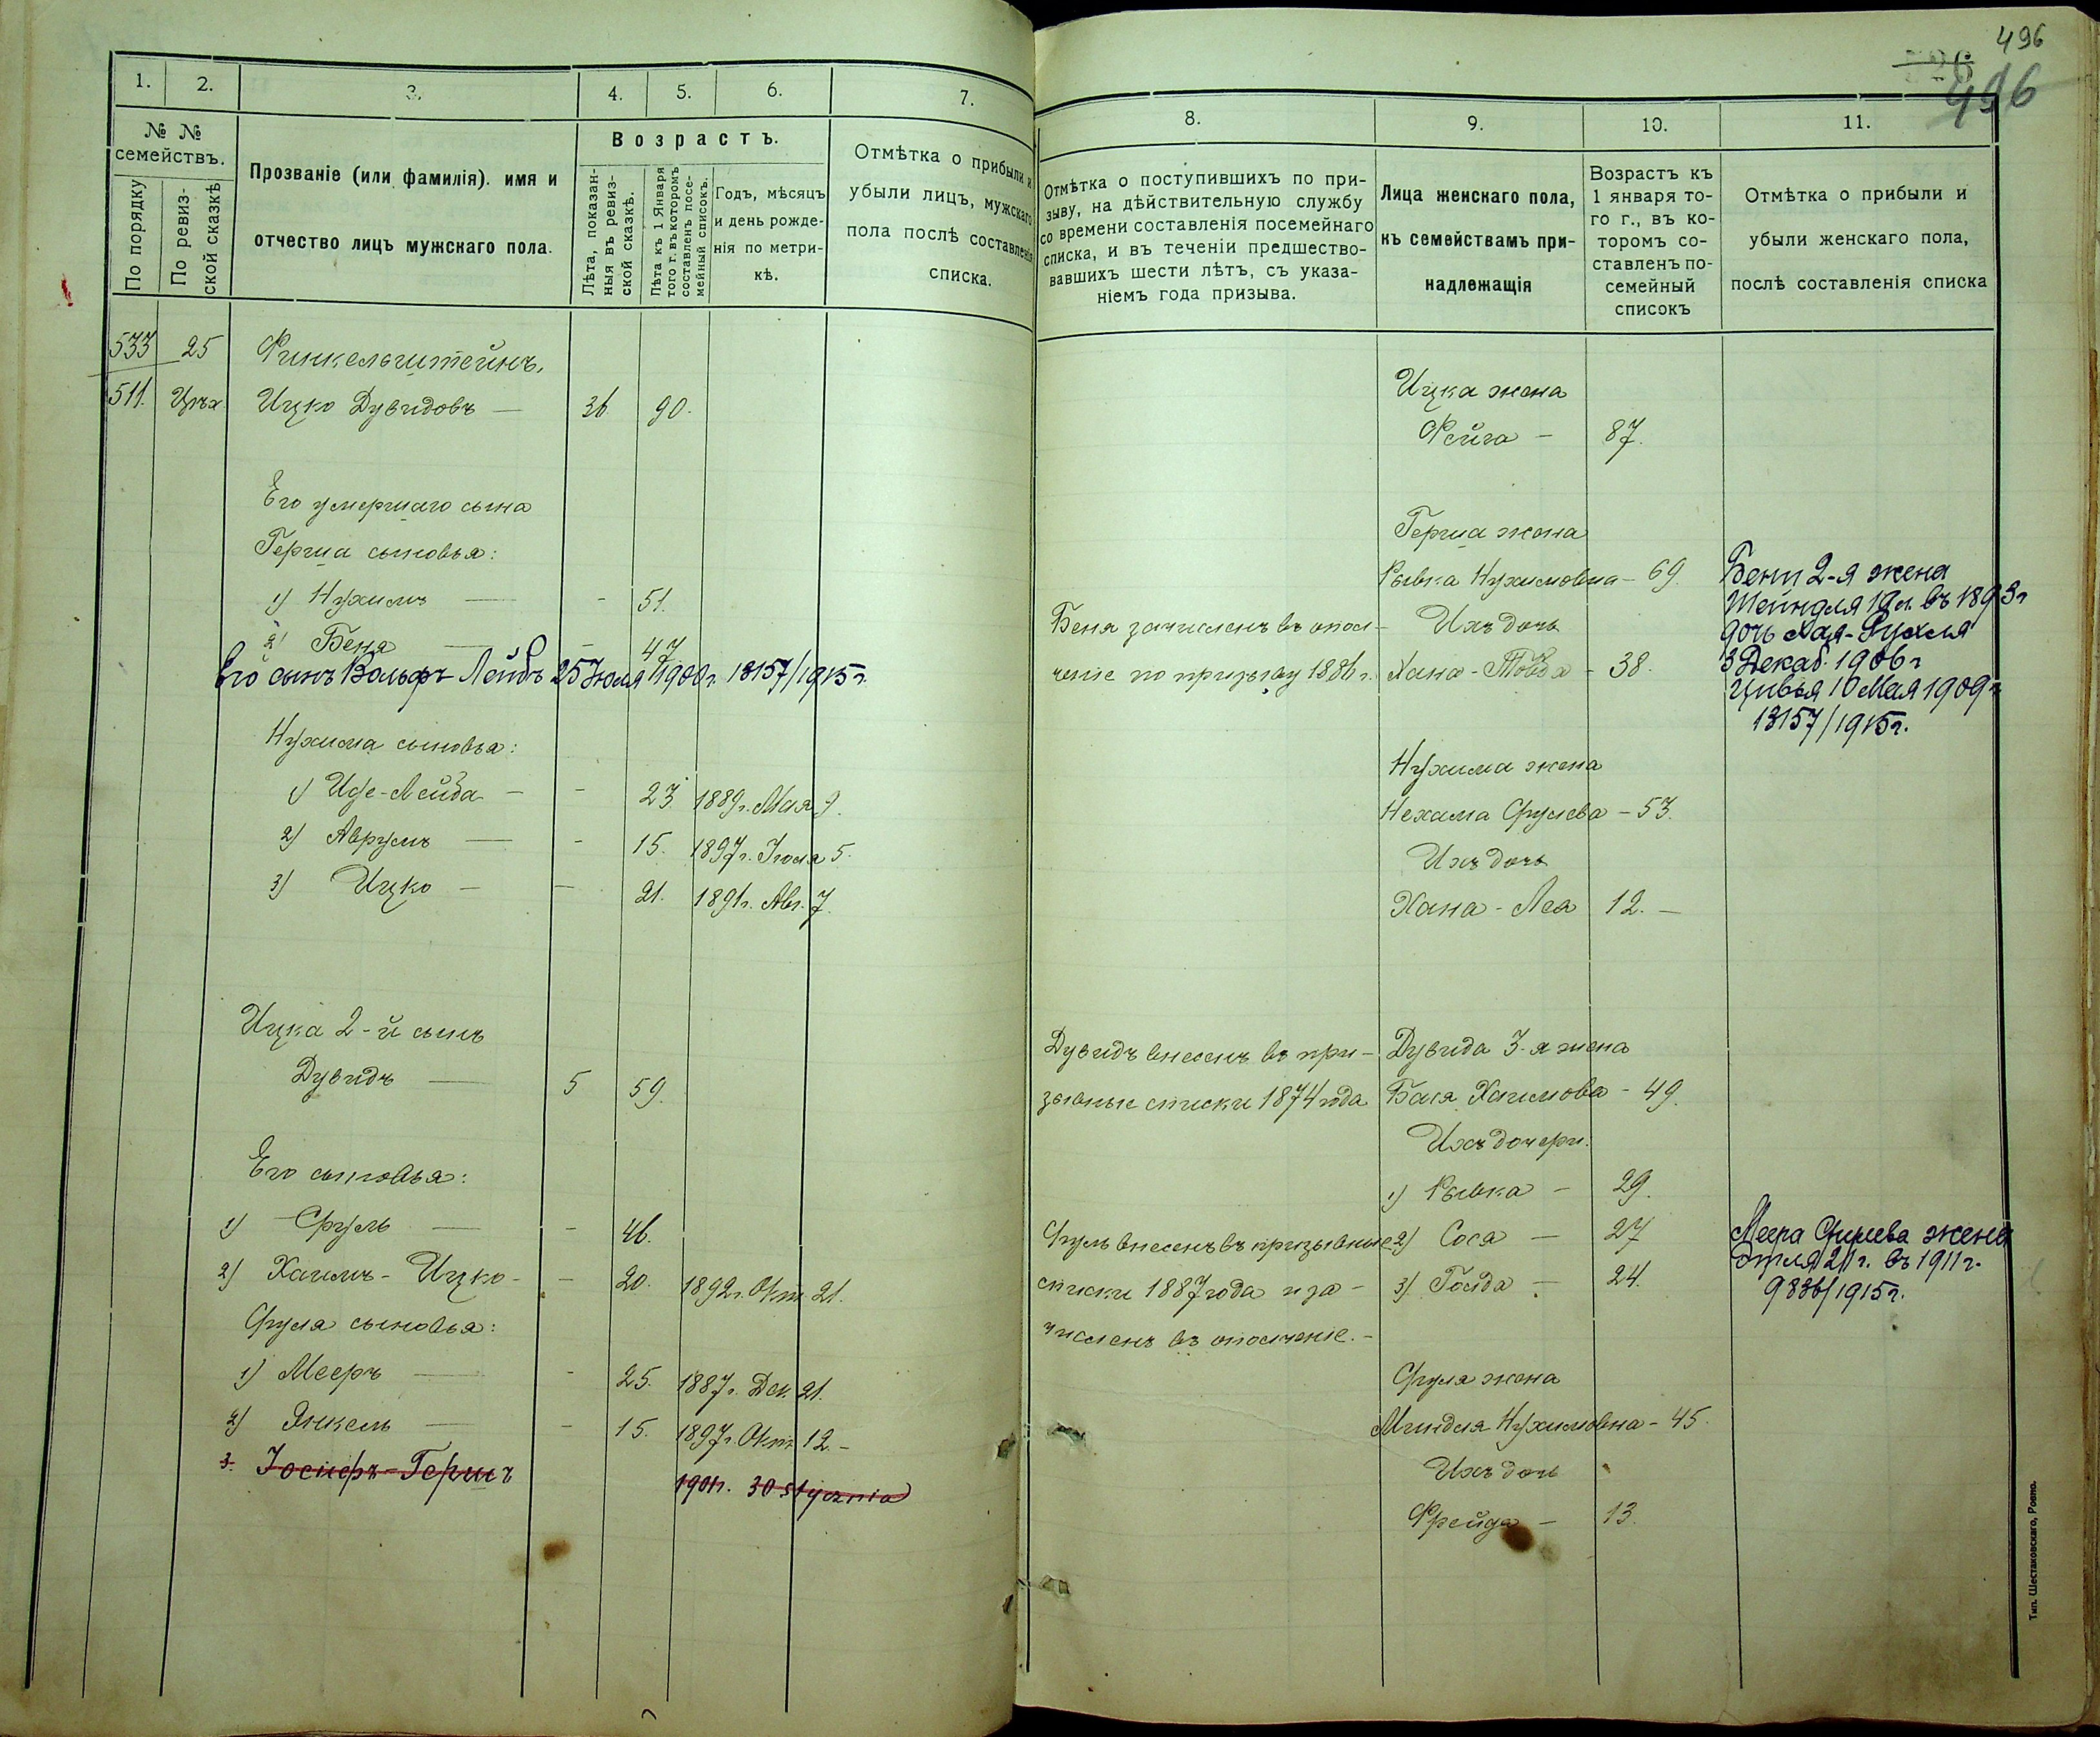 496
496
1. 2. 3. 4. 5. 6. 7.
№ № семействъ.
По порядку
По ревизской сказкѣ
Прозваніе (или фамилія). имя и
отчество лицъ мужскаго пола.
Возрастъ.
Лѣта, показан-
ныя въ ревиз-
ской сказкѣ.
Лѣта къ 1 Января
того г. въ которомъ
составленъ посе-
мейный списокъ.
Годъ, мѣсяцъ
и день рожде-
нія по метри-
кѣ.
Отмѣтка о прибыли и
убыли лицъ, мужскаго
пола послѣ составленія
списка.
533 25 Финкельштейнъ,
511. Цпх Ицко Дувидовъ — 36 90.
Его умершаго сына
Герша сыновья:
1) Нухимъ — - 51.
2) Беня — - 47
Его сынъ Вольфъ Лейбъ 25 Июля 1900 г. 13157/1915 г.
Нухима сыновья:
1) Иде-Лейба - - 23 1889 г. Мая 9.
2) Аврумъ — - 15. 1897 г. Іюля 5.
3) Ицко - — 21. 1891 г. Авг. 7.
Ицка 2-й сынъ
Дувидъ — 5 59.
Его сыновья:
1) Сруль — - 46.
2) Хаимъ-Ицко - - 20. 1892 г. Окт. 21.
Сруля сыновья:
1) Мееръ — - 25. 1887 г. Дек. 21.
2) Янкель — - 15. 1897 г. Окт. 12.-
3. Іосифъ-Гершъ 1901 г. 30 stycznia
8. 9. 10. 11.
Отмѣтка о поступившихъ по при-
зыву, на дѣйствительную службу
со времени составленія посемейнаго
списка, и въ теченіи предшество-
вавшихъ шести лѣтъ, съ указа-
ніемъ года призыва.
Лица женскаго пола,
къ семействамъ при-
надлежащія
Возрастъ къ
1 января то-
го г., въ ко-
торомъ со-
ставленъ по-
семейный
списокъ
Отмѣтка о прибыли и
убыли женскаго пола,
послѣ составленія списка
Ицка жена
Фейга — 87.
Герша жена
Рывка Нухимовна - 69.
Ихъ дочь
Хана-Товба - 38.
Беня зачисленъ въ опол-
ченіе по призыву 1886 г.
Бени 2-я жена
Шейндля 19 л. въ 1893 г
дочь Хая-Рухля
3 Декаб. 1906 г
Цивья 10 Мая 1909 г
13157/1915 г.
Нухима жена
Нехама Срулева - 53.
Ихъ дочь
Хана-Лея 12. —
Дувидъ внесенъ въ при-
зывные списки 1874 года
Дувида 3-я жена
Бася Хаимова - 49.
Ихъ дочери:
1) Рывка — 29.
2) Сося — 27
3) Гольда — 24.
Сруль внесенъ въ призывные
списки 1887 года и за-
численъ въ ополченіе.-
Меера Срулева жена
Этля 21 г. въ 1911 г.
9836/1915 г.
Сруля жена
Миндля Нухимовна - 45.
Ихъ дочь
Фрейда — 13.
Тип. Шестаковскаго, Ровно.